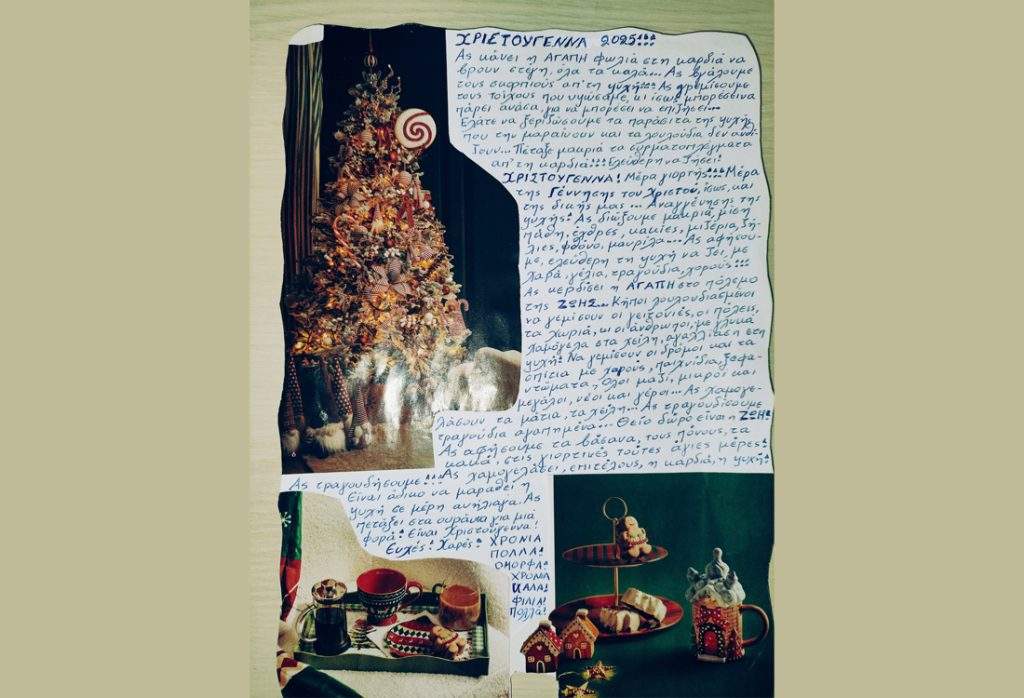 ΧΡΙΣΤΟΥΓΕΝΝΑ 2025!!!
Ας κάνει η ΑΓΑΠΗ φωλιά στη καρδιά να
βρουν στέγη, όλα τα καλά... Ας βγάλουμε
τους σκορπιούς απ' τη ψυχή!!! Ας γκρεμίσουμε
τους τοίχους που υψώσαμε, κι ίσως, μπορέσει να
πάρει ανάσα, για να μπορέσει να επιζήσει...
Ελάτε να ξεριζώσουμε τα παράσιτα της ψυχής
που την μαραίνουν και τα λουλούδια δεν ανθί-
ζουν... Πέταξε μακριά τα συρματοπλέγματα
απ' τη καρδιά!!! Ελεύθερη να ζήσει!
ΧΡΙΣΤΟΥΓΕΝΝΑ! Μέρα γιορτής!!! Μέρα
της Γέννησης του Χριστού, ίσως, και
της δικής μας... Αναγέννησης της
ψυχής! Ας διώξουμε μακριά, μίση
πάθη, έχθρες, κακίες, μιζέρια, ζή-
λιες, φθόνο, μαυρίλα... Ας αφήσου-
με, ελεύθερη τη ψυχή να ζει, με
χαρά, γέλια, τραγούδια, χορούς!!!
Ας κερδίσει η ΑΓΑΠΗ στο πόλεμο
της ΖΩΗΣ... Κήποι λουλουδιασμένοι
να γεμίσουν οι γειτονιές, οι πόλεις,
τα χωριά, κι οι άνθρωποι, με γλυκά
χαμόγελα στα χείλη, αγαλλίαση στη
ψυχή! Να γεμίσουν οι δρόμοι και τα
σπίτια με χορούς, παιχνίδια, ξεφα-
ντώματα, Όλοι μαζί, μικροί και
μεγάλοι, νέοι και γέροι... Ας χαμογε-
λάσουν τα μάτια, τα χείλη... Ας τραγουδίσουμε
τραγούδια αγαπημένα... Θείο δώρο είναι η ΖΩΗ!
Ας αφήσουμε τα βάσανα, τους πόνους, τα
κακά, στις γιορτινές τούτες άγιες μέρες!
Ας τραγουδήσουμε!!! Ας χαμογελάσει, επιτέλους, η καρδιά, η ψυχή!
Είναι άδικο να μαραθεί η
ψυχή σε μέρη ανήλιαγα. Ας
πετάξει στα ουράνια για μιά
φορά! Είναι Χριστούγεννα!
Ευχές! Χαρές! ΧΡΟΝΙΑ
ΠΟΛΛΑ!
ΟΜΟΡΦΑ!
ΧΡΟΝΙΑ
ΚΑΛΑ!
ΦΙΛΙΑ!
Πολλά!